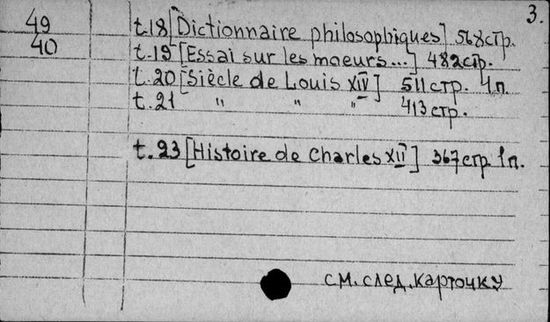 3.
49 t.18 [Dictionnaire philosophiques] 568стр.
40 t.19 [Essai sur les moeurs...] 482стр.
t.20 [Siècle de Louis XIV] 511стр. 1п.
t.21 " " " 413стр.
t.23 [Histoire de Charles XII] 367стр 1п.
см. след. карточку